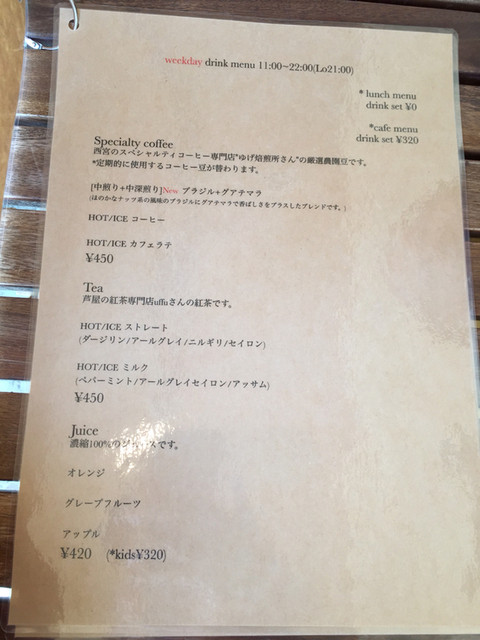 weekday drink menu 11:00~22:00(Lo21:00)
* lunch menu
drink set ¥0
*cafe menu
drink set ¥320
Specialty coffee
西宮のスペシャルティコーヒー専門店"ゆげ焙煎所さん"の厳選農園豆です。
*定期的に使用するコーヒー豆が替わります。
[中煎り+中深煎り]New ブラジル+グアテマラ
(ほのかなナッツ系の風味のブラジルにグアテマラで香ばしさをプラスしたブレンドです。)
HOT/ICE コーヒー
HOT/ICE カフェラテ
¥450
Tea
芦屋の紅茶専門店uffuさんの紅茶です。
HOT/ICE ストレート
(ダージリン/アールグレイ/ニルギリ/セイロン)
HOT/ICE ミルク
(ペパーミント/アールグレイセイロン/アッサム)
¥450
Juice
濃縮100%のジュースです。
オレンジ
グレープフルーツ
アップル
¥420 (*kids¥320)